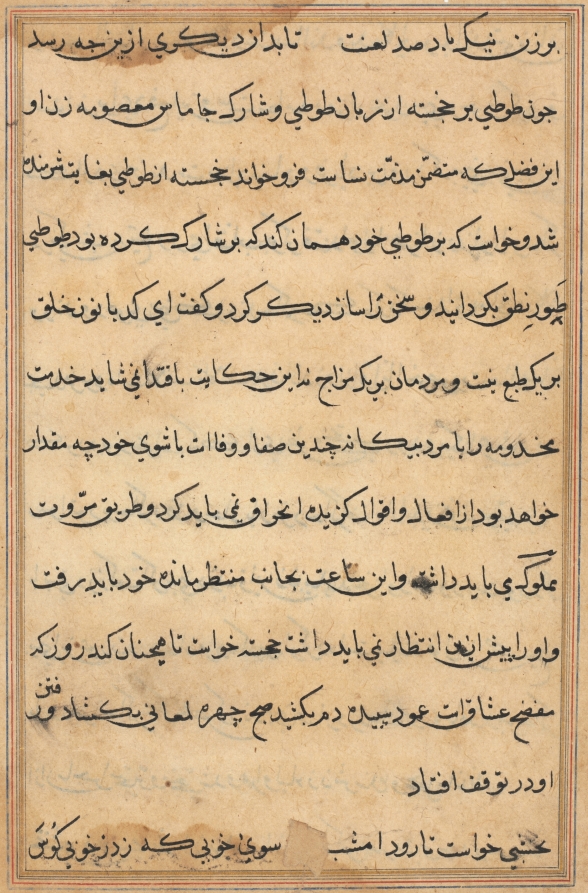 برزن نیک باد صد لعنت تا بد از دیکری ازین جه رسد
جون طوطی بر خجسته از زبان طوطی و شارک جاماس معصومه زن او
این فضل که متضمّن مذمّت نسا ست فرو خواند خجسته از طوطی بغایت شرمنده
شد و خواست که بر طوطی خود همان کند که بر شارک کرده بود طوطی
طور نطق بکردانید و سخن را ساز دیکر کرد و کفت ای کدبانو زن خلق
بر یک طبع نیست و مردمان بر یک مزاج نه این حکایت باقتدا نمی شاید خدمت
مخدومه را با مرد بیکانه چندین صفا و وفاات با شوی خود چه مقدار
خواهد بود از افعال و اقوال کزیده انحراق نمی باید کرد و طریق مرّوت
مملوک می باید داشت و این ساعت بجانب منتظر مانده خود باید رفت
و او را پیش ازین انتظار نمی باید داشت خجسته خواست تا همجنان کند روز که
مفضح عشاق ات عمود سپیده دم بکشید صبح چهره لمعانی بکشاد و رفتن
او در توقف افتاد
نخشبی خواست تا رود امشب سوی خوبی که زد ز خوبی کوس